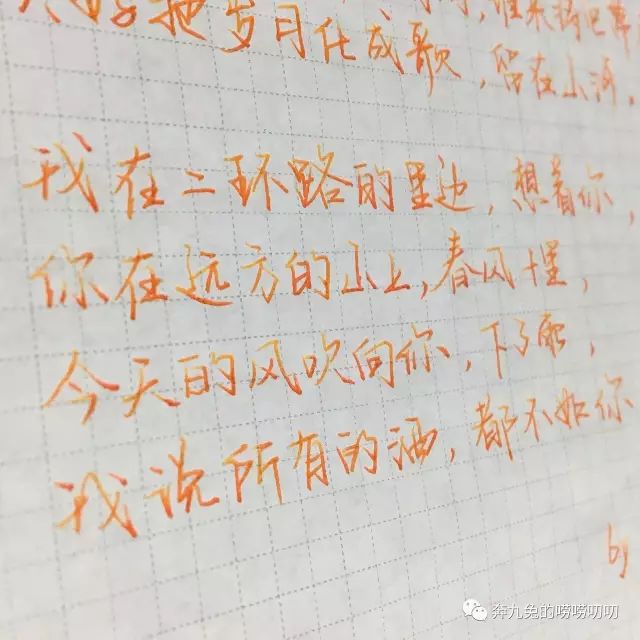 好把岁月化成歌，留在山河，
我在二环路的里边，想着你，
你在远方的山上，春风十里，
今天的风吹向你，下了雨，
我说所有的酒，都不如你
by
奔九兔的唠唠叨叨